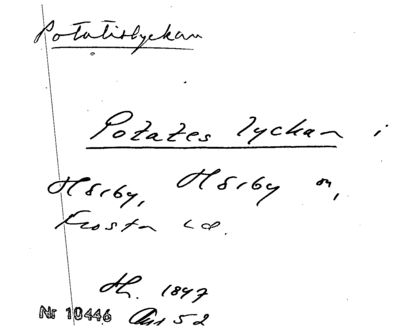 Potatislyckan
Potates lyckan i
Hörby, Hörby sn,
Frosta hd.
Nr 10446
1847
52